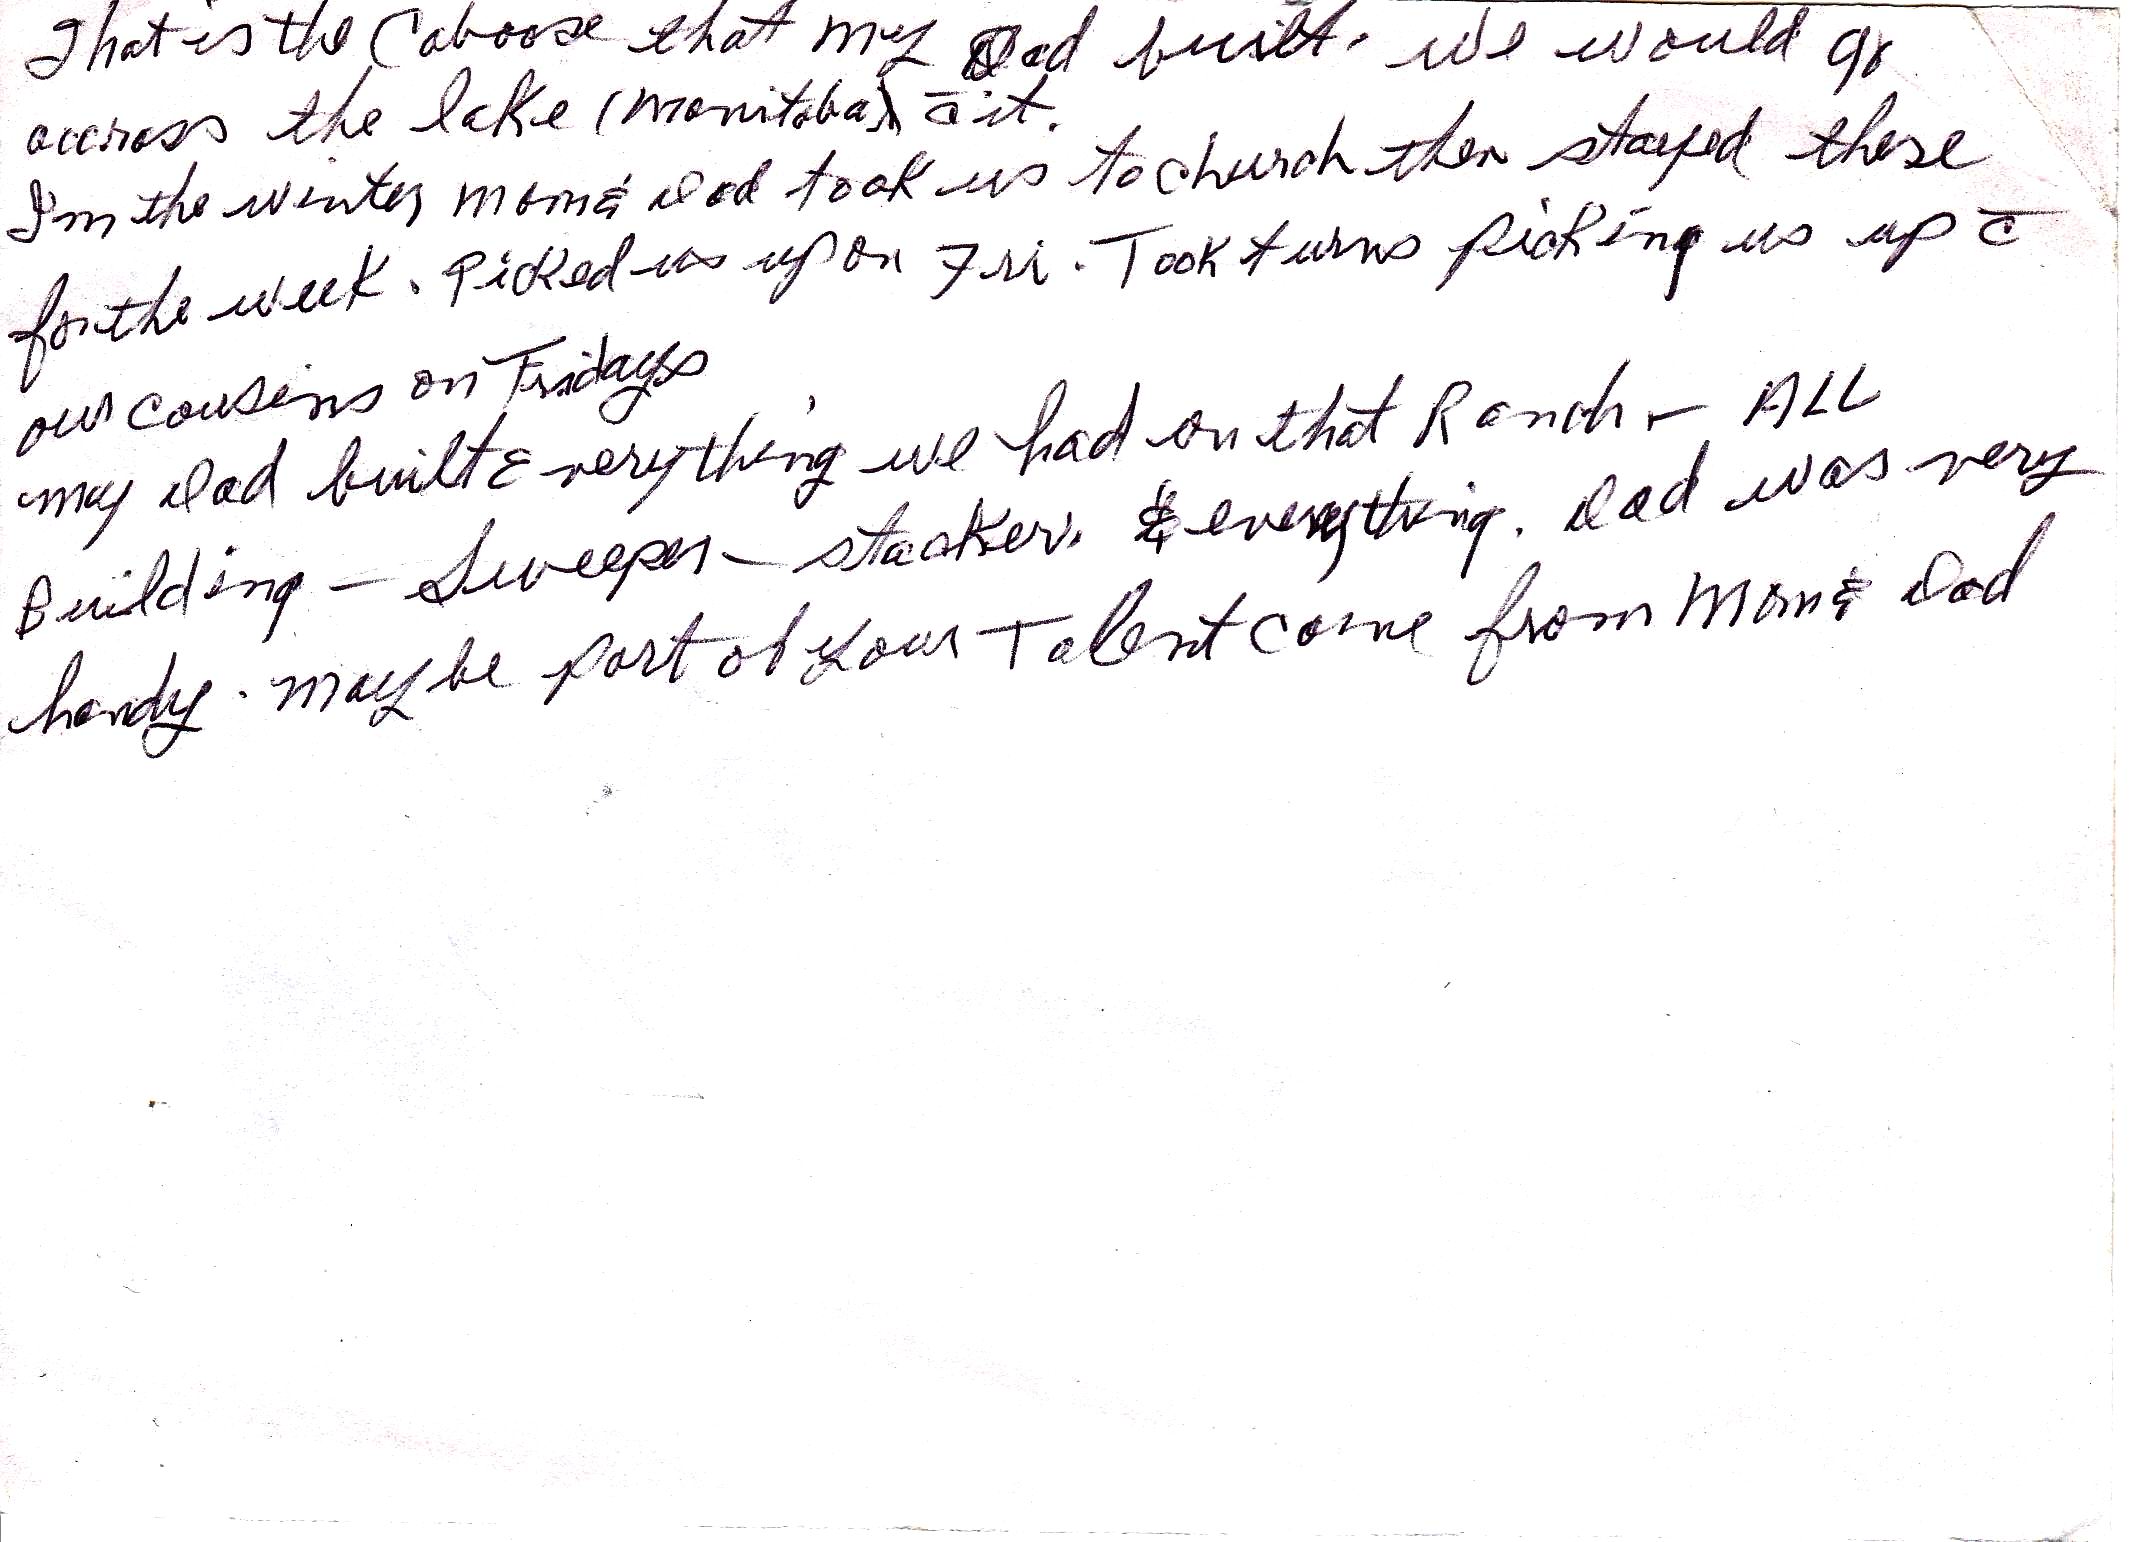 That is the Caboose that my Dad built. We would go
accross the lake (Manitoba) c̄ it.
In the winter mom & Dad took us to church then stayed there
for the week. Picked us up on Fri. Took turns picking us up c̄
our cousins on Fridays
my Dad built Everything we had on that Ranch - ALL
Building - Sweeper - stacker. & everything. Dad was very
handy. Maybe part of your Talent come from Mom & Dad